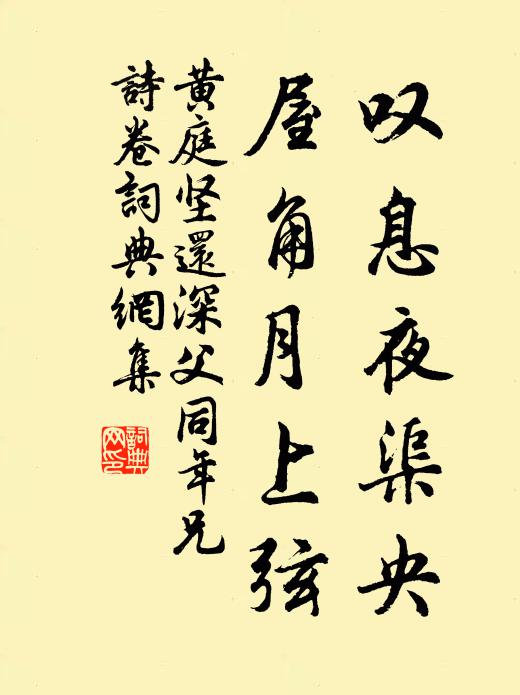 叹息夜渠央
屋角月上弦
黄庭坚還深父同年兄
詩卷詞典網集
詞典
网印